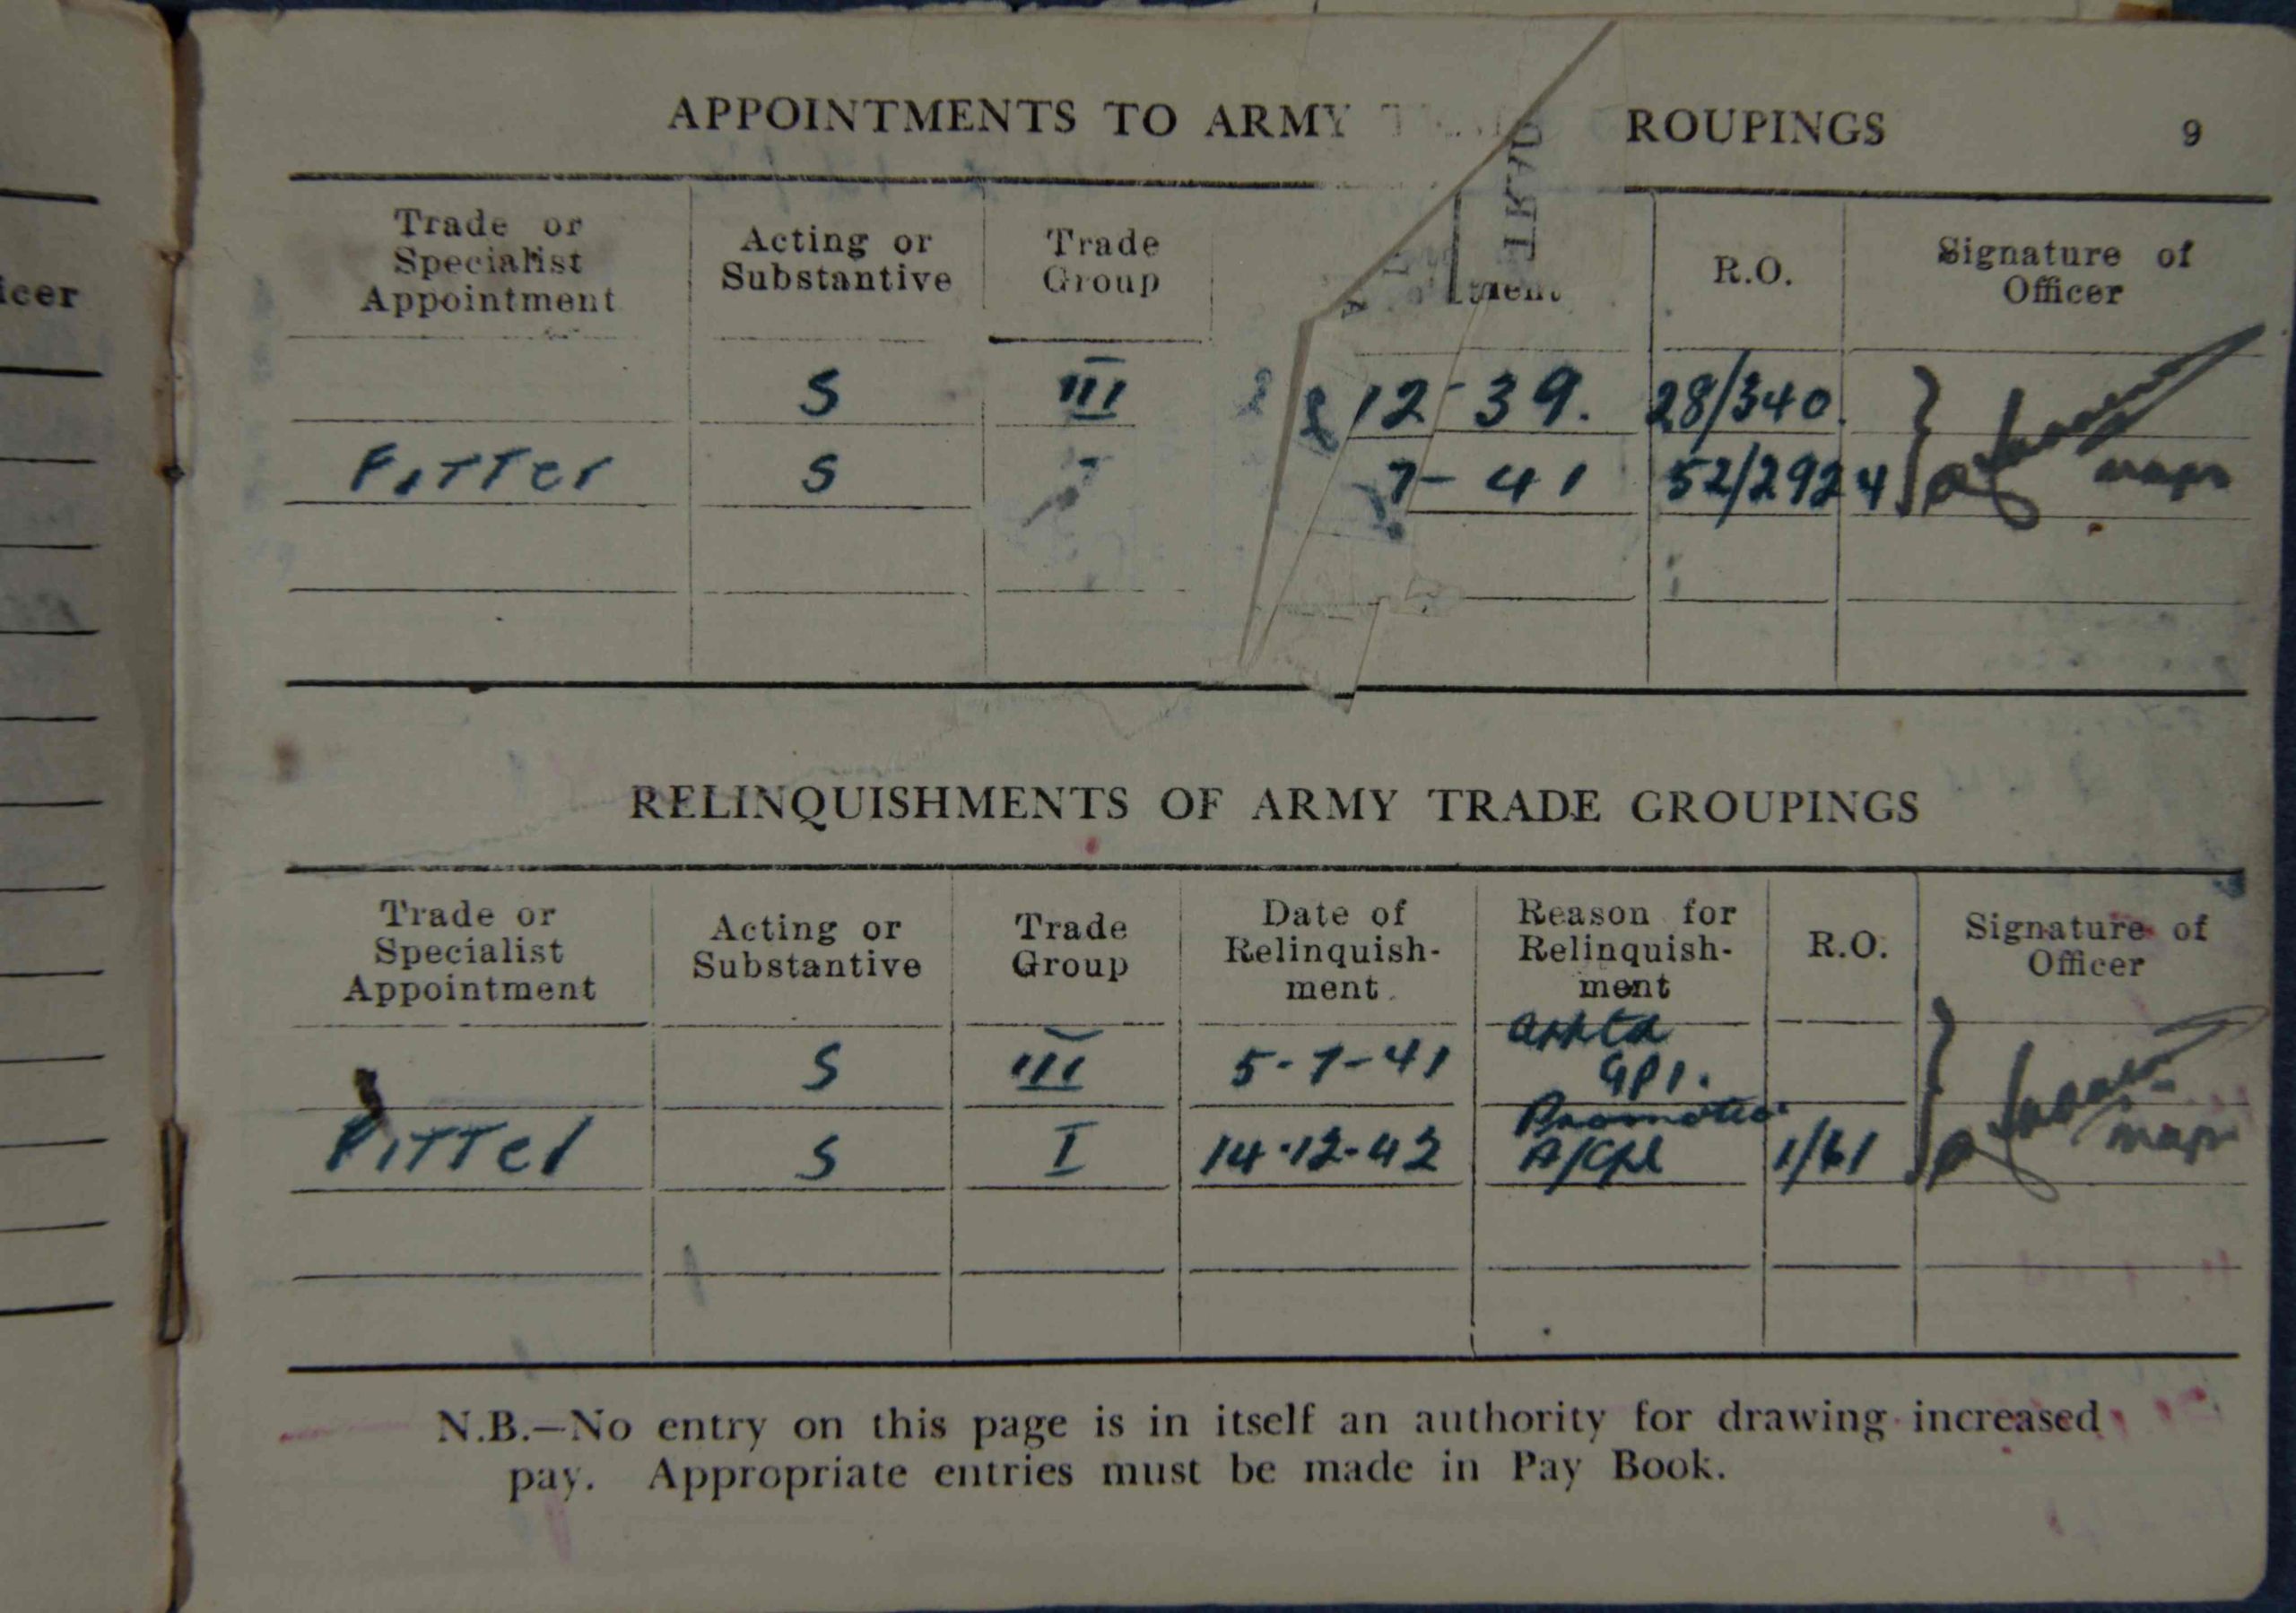 icer
APPOINTMENTS TO ARMY TRAD ROUPINGS 9
Trade or Specialist Appointment
Acting or Substantive
Trade Group
ment
R.O.
Signature of Officer
S III 12-39. 28/340.
Fitter S 7-41 52/2924
RELINQUISHMENTS OF ARMY TRADE GROUPINGS
Trade or Specialist Appointment
Acting or Substantive
Trade Group
Date of Relinquish-ment
Reason for Relinquish-ment
R.O.
Signature of Officer
S III 5-7-41 GP1.
Fitter S I 14-12-42 A/Cpl 1/61
N.B.—No entry on this page is in itself an authority for drawing increased
pay. Appropriate entries must be made in Pay Book.